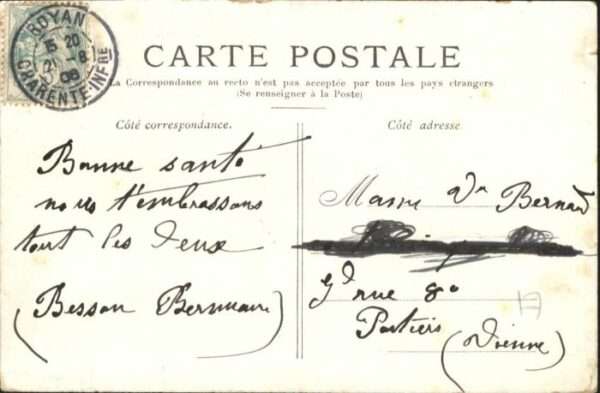 ROYAN
15 20
21 8
06
CHARENTE-INFRE
CARTE POSTALE
La Correspondance au recto n'est pas acceptée par tous les pays etrangers
(Se renseigner à la Poste)
Côté correspondance.
Côté adresse
Bonne santé
nous t'embrassons
tout les deux
(Besson
Bernard
Gd rue 80
Poitiers
(Vienne)
17